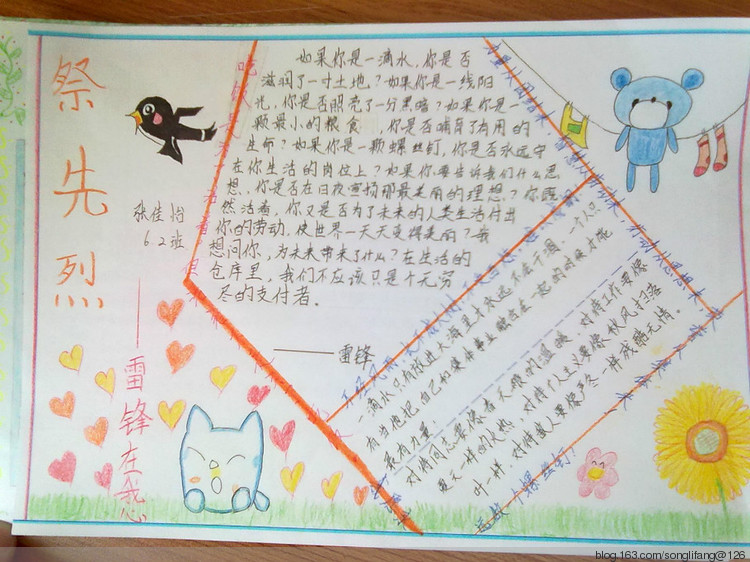 祭先烈
张佳怡
6.2班
——雷锋在我心
如果你是一滴水,你是否
滋润了一寸土地?如果你是一线阳
光,你是否照亮了一分黑暗?如果你是一
颗最小的粮食,你是否哺育了有用的
生命?如果你是一颗螺丝钉,你是否永远守
在你生活的岗位上?如果你要告诉我们什么思
想,你是否在日夜宣扬那最美丽的理想?你既
然活着,你又是否为了未来的人类生活付出
你的劳动,使世界一天天变得美丽?我
想问你,为未来带来了什么?在生活的
仓库里,我们不应该只是个无穷
尽的支付者。
——雷锋
一滴水只有放进大海里才永远不会干涸,一个人只
有当他把自己和集体事业融合在一起的时候才能
最有力量。
对待同志要像春天般的温暖,对待工作要像
夏天一样的火热,对待个人主义要像秋风扫落
叶一样,对待敌人要像严冬一样残酷无情。
blog.163.com/songlifang@126